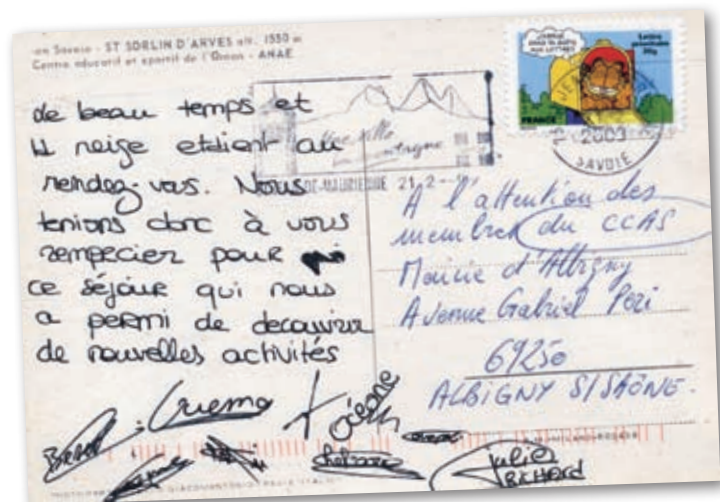 en Savoie - ST SORLIN D'ARVES alt. 1550 m
Centre éducatif et sportif de l'Ornon - ANAE
de beau temps et
la neige etaient au
rendez-vous. Nous
tenions donc à vous
remercier pour
ce séjour qui nous
a permi de decouvrir
de nouvelles activités
Une ville
La montagne
DE-MAURIENNE 21-2
Lettre
prioritaire
20g
FRANCE
2009
SAVOIE
A l'attention des
membres du CCAS
Mairie d'Albigny
Avenue Gabriel Péri
69250
ALBIGNY S/SAÔNE.
Océane
Julie
RICHARD